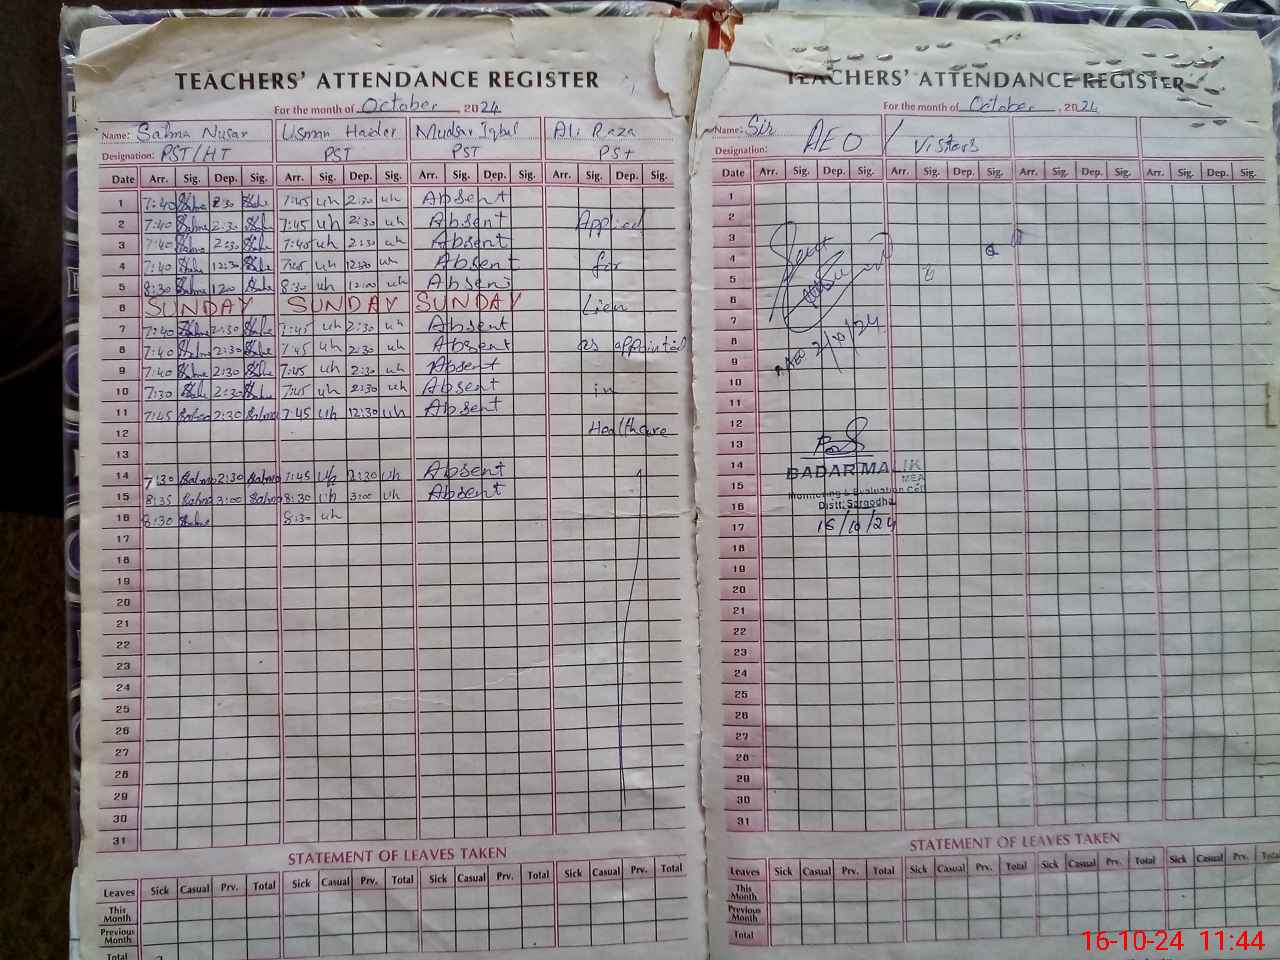 TEACHERS' ATTENDANCE REGISTER
For the month of October, 2024
Name: Salma Nusar Usman Haider Mudsar Iqbal Ali Raza
Designation: PST/HT PST PST PST
Date Arr. Sig. Dep. Sig. Arr. Sig. Dep. Sig. Arr. Sig. Dep. Sig. Arr. Sig. Dep. Sig.
1 7:40 2:30 7:45 uh 2:30 uh Absent
2 7:40 Salma 2:30 7:45 uh 2:30 uh Absent Applied
3 7:40 Salma 2:30 7:45 uh 2:30 uh Absent
4 7:40 12:30 7:45 uh 12:30 uh Absent for
5 8:30 8:30 uh 12:00 uh Absent
6 SUNDAY SUNDAY SUNDAY Lien
7 7:40 2:30 7:45 uh 2:30 uh Absent
8 7:40 2:30 7:45 uh 2:30 uh Absent as appointed
9 7:40 2:30 7:45 uh 2:30 uh Absent
10 7:30 2:30 7:45 uh 2:30 uh Absent in
11 7:45 Salma 2:30 Salma 7:45 uh 12:30 uh Absent
12 Healthcare
13
14 7:30 Salma 2:30 Salma 7:45 uh 2:30 uh Absent
15 8:35 Salma 3:00 Salma 8:30 uh 3:00 uh Absent
16 8:30 8:30 uh
17
18
19
20
21
22
23
24
25
26
27
28
29
30
31
STATEMENT OF LEAVES TAKEN
Leaves Sick Casual Prv. Total Sick Casual Prv. Total Sick Casual Prv. Total Sick Casual Prv. Total
This Month
Previous Month
Total
TEACHERS' ATTENDANCE REGISTER
For the month of October, 2024
Name: Sir AEO / Visitors
Designation:
Date Arr. Sig. Dep. Sig. Arr. Sig. Dep. Sig. Arr. Sig. Dep. Sig. Arr. Sig. Dep. Sig.
1
2
3
4
5
6
7
8 AEO 2/10/24
9
10
11
12
13
14 BADAR MALIK
15 MEA
Monitoring & Evaluation Cell
16 Distt: Sargodha
17 15/10/24
18
19
20
21
22
23
24
25
26
27
28
29
30
31
STATEMENT OF LEAVES TAKEN
Leaves Sick Casual Prv. Total Sick Casual Prv. Total Sick Casual Prv. Total Sick Casual Prv. Total
This Month
Previous Month
Total
16-10-24 11:44